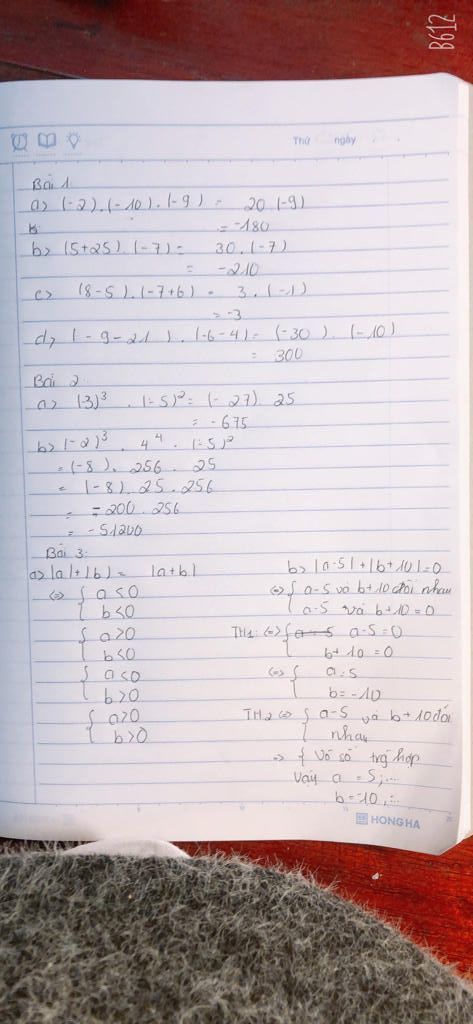 B612
Thứ ngày
Bài 1
a> (-2).(-10).(-9) = 20.(-9)
= -180
b> (5+25).(-7) = 30.(-7)
= -210
c> (8-5).(-7+6) = 3.(-1)
= -3
d> (-9-21).(-6-4) = (-30).(-10)
= 300
Bài 2
a> (3)³ . (-5)² = (-27) 25
= -675
b> (-2)³ . 4⁴ . (-5)²
= (-8). 256 . 25
= (-8). 25 . 256
= -200 . 256
= -51200
Bài 3:
a> |a|+|b| = |a+b|
<=> { a<0
b<0
{ a>0
b<0
{ a<0
b>0
{ a>0
b>0
b> |a-5|+|b+10|=0
<=> { a-5 và b+10 đối nhau
a-5 và b+10=0
TH1: <=> { a-5 a-5=0
b+10=0
<=> { a=5
b=-10
TH2 <=> { a-5 và b+10 đối
nhau
=> { Vô số trg hợp
Vậy a = 5;...
b=-10,...
HONG HA